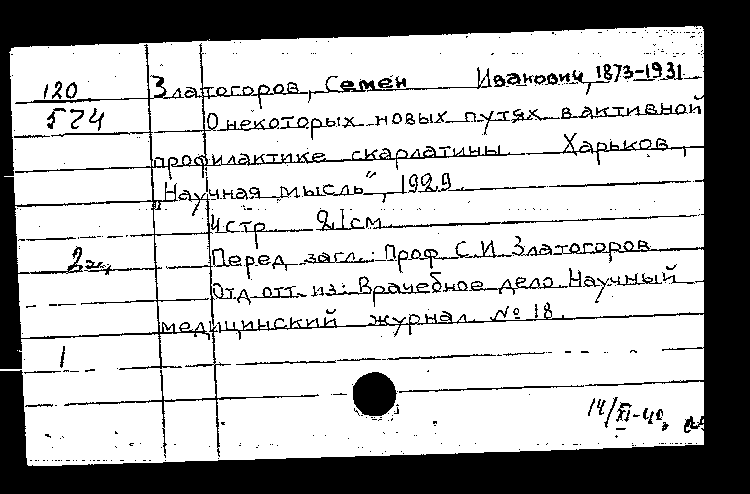 120 Златогоров, Семен Иванович, 1873-1931
574 О некоторых новых путях в активной
профилактике скарлатины Харьков,
„Научная мысль“, 1929
4 стр 21 см
2 экз Перед загл.: Проф С.И. Златогоров
Отд отт. из: Врачебное дело Научный
медицинский журнал № 18.
1
14/XI-40.